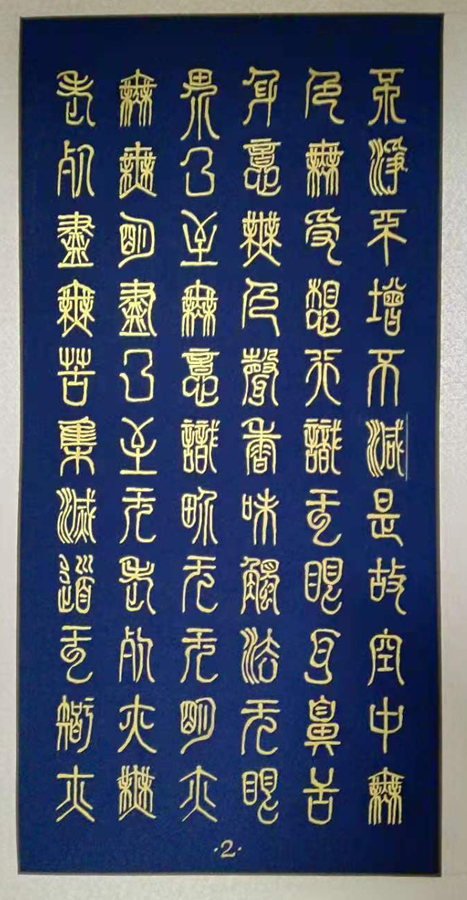 不淨不增不減是故空中無
色無受想行識无眼耳鼻舌
身意無色聲香味觸法无眼
界乃至無意識界无无明亦
無無明盡乃至无老死亦無
老死盡無苦集滅道无智亦
·2·